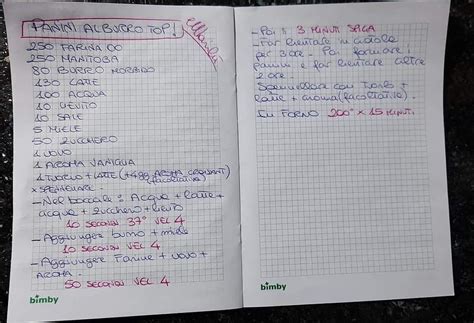 PANINI AL BURRO TOP!
250 FARINA 00
250 MANITOBA
80 BURRO MORBIDO
130 LATTE
100 ACQUA
10 LIEVITO
10 SALE
5 MIELE
50 ZUCCHERO
1 UOVO
1 AROMA VANIGLIA
1 TUORLO + LATTE (+ AROMA
(facoltativo)
X SPENNELLARE
- Nel boccale: Acqua + latte +
acqua + zucchero + lievito
10 SECONDI 37° VEL 4
- Aggiungere burro + miele
10 SECONDI VEL 4
- Aggiungere Farine + uovo +
AROMA.
50 SECONDI VEL 4
bimby
- Poi: 3 MINUTI SPIGA
- Far lievitare in ciotola
per 3 ore. Poi formare i
panini e far lievitare altre
2 ore.
Spennellare con Tuorlo +
latte + aroma (facoltativo).
IN FORNO 200° X 15 MINUTI
bimby